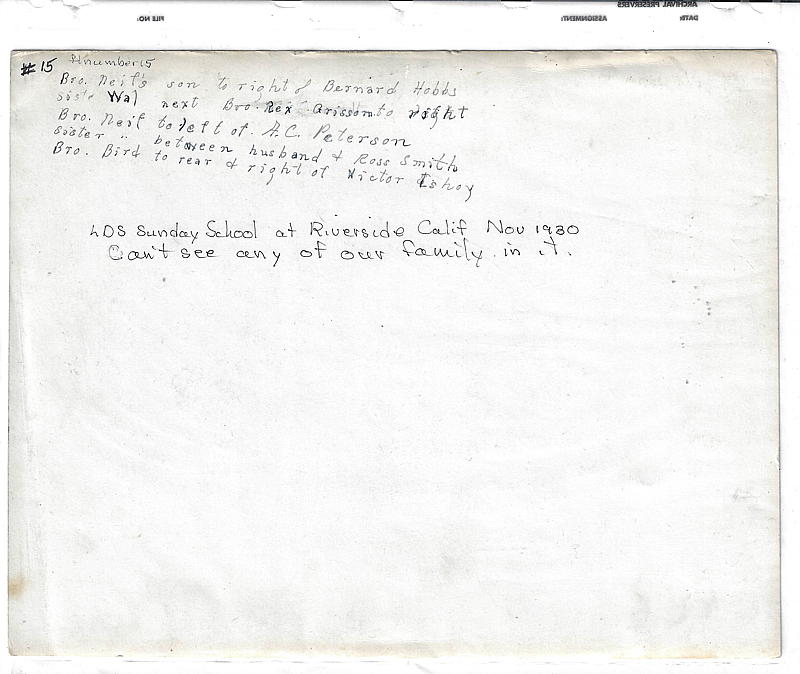 ARCHIVAL PRESERVERS
DATE: ASSIGNMENT: FILE NO:
#15 #number 15
Bro. Neil's son to right of Bernard Hobbs
Sister Wal next Bro. Rex Grissom to right
Bro. Neil to left of A.C. Peterson
Sister " between husband & Ross Smith
Bro. Bird to rear & right of Victor Ishoy
LDS Sunday School at Riverside Calif Nov 1930
Can't see any of our family in it.